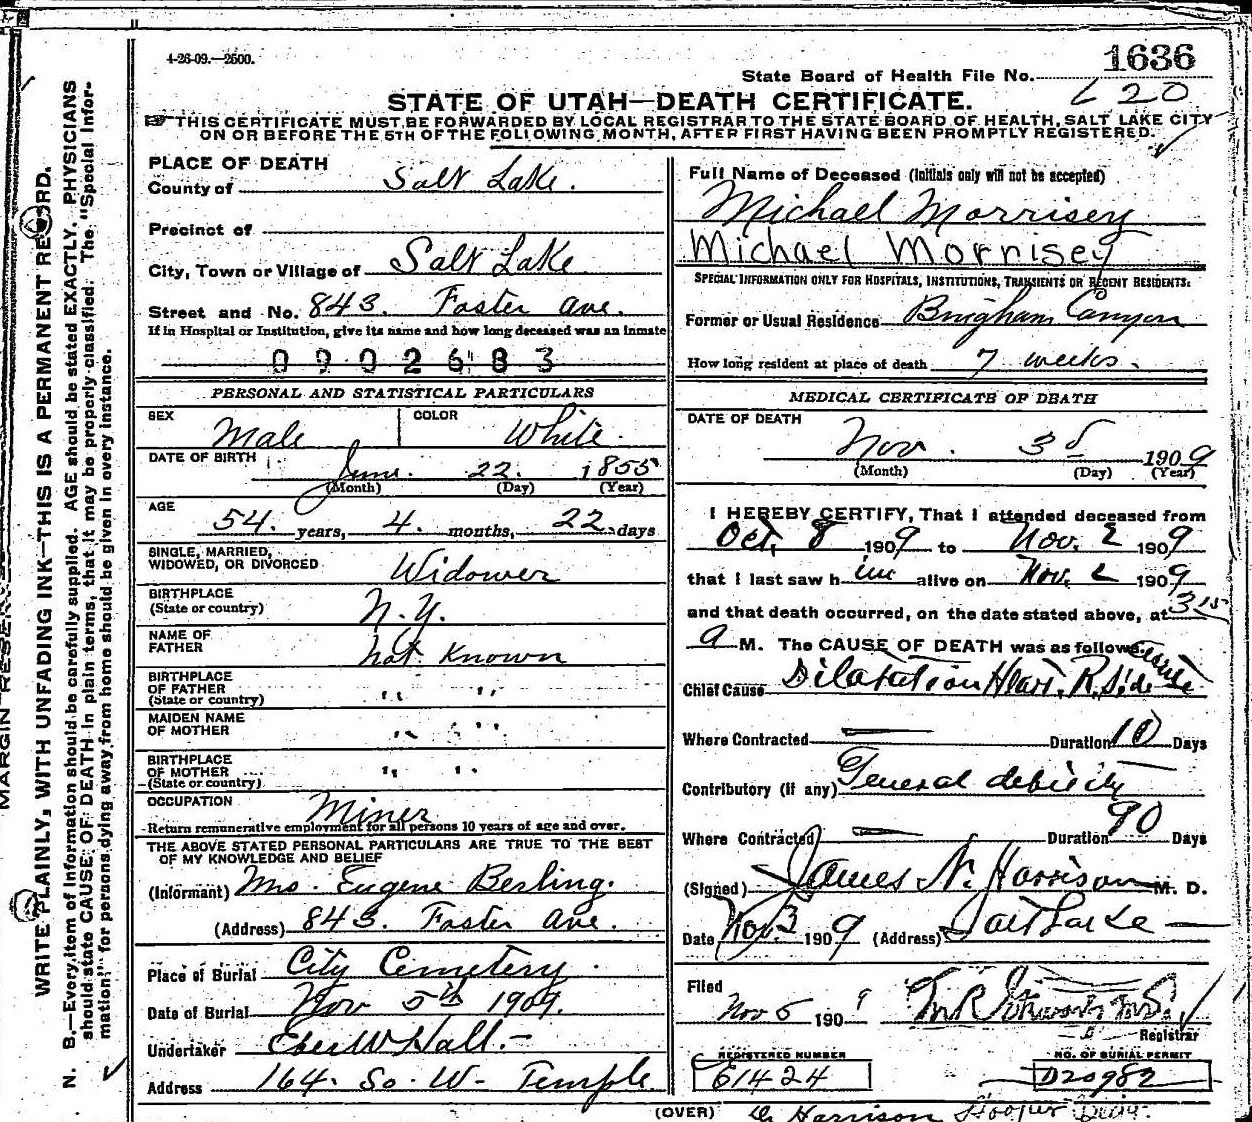 4-26-09.—2500.
1636
State Board of Health File No.
620
STATE OF UTAH—DEATH CERTIFICATE.
THIS CERTIFICATE MUST BE FORWARDED BY LOCAL REGISTRAR TO THE STATE BOARD OF HEALTH, SALT LAKE CITY
ON OR BEFORE THE 5TH OF THE FOLLOWING MONTH, AFTER FIRST HAVING BEEN PROMPTLY REGISTERED.
PLACE OF DEATH
County of Salt Lake.
Precinct of
City, Town or Village of Salt Lake
Street and No. 843. Foster Ave.
If in Hospital or Institution, give its name and how long deceased was an inmate
0902683
PERSONAL AND STATISTICAL PARTICULARS
SEX Male COLOR White.
DATE OF BIRTH June. 22. 1855
(Month) (Day) (Year)
AGE
54. years, 4. months, 22 days
SINGLE, MARRIED,
WIDOWED, OR DIVORCED Widower
BIRTHPLACE
(State or country) N.Y.
NAME OF
FATHER Not Known
BIRTHPLACE
OF FATHER " "
(State or country)
MAIDEN NAME
OF MOTHER " "
BIRTHPLACE
OF MOTHER " "
(State or country)
OCCUPATION Miner
Return remunerative employment for all persons 10 years of age and over.
THE ABOVE STATED PERSONAL PARTICULARS ARE TRUE TO THE BEST
OF MY KNOWLEDGE AND BELIEF
(Informant) Mrs. Eugene Berling.
(Address) 843. Foster Ave.
Place of Burial City Cemetery.
Date of Burial Nov 5th 1909.
Undertaker Eber W Hall.-
Address 164. So. W- Temple
Full Name of Deceased (Initials only will not be accepted)
Michael Morrisey
Michael Morrisey
SPECIAL INFORMATION ONLY FOR HOSPITALS, INSTITUTIONS, TRANSIENTS OR RECENT RESIDENTS:
Former or Usual Residence Bingham Canyon
How long resident at place of death 7 weeks.
MEDICAL CERTIFICATE OF DEATH
DATE OF DEATH
Nov. 3d 1909
(Month) (Day) (Year)
I HEREBY CERTIFY, That I attended deceased from
Oct. 8 1909 to Nov. 2 1909
that I last saw him alive on Nov. 2 1909
and that death occurred, on the date stated above, at 3 15
a M. The CAUSE OF DEATH was as follows:
Chief Cause Dilatation Heart. R. Side acute
Where Contracted — Duration 10 Days
Contributory (if any) General debility
Where Contracted — Duration 90 Days
(Signed) James N. Harrison M. D.
Date Nov. 3 1909 (Address) Salt Lake
Filed
Nov 5 1909
Registrar
REGISTERED NUMBER NO. OF BURIAL PERMIT
61424 D20982
(OVER) Harrison Hooper Bldg.
MARGIN RESERVED
WRITE PLAINLY, WITH UNFADING INK—THIS IS A PERMANENT RECORD.
N. B.—Every item of information should be carefully supplied. AGE should be stated EXACTLY. PHYSICIANS
should state CAUSE OF DEATH in plain terms, that it may be properly classified. The "Special Infor-
mation" for persons dying away from home should be given in every instance.